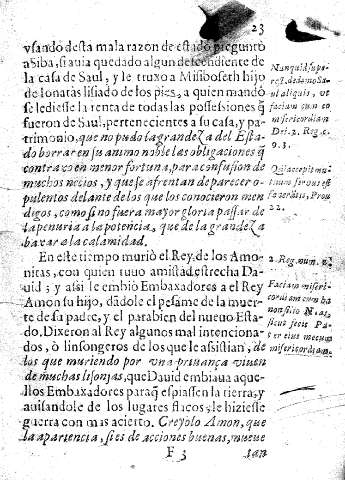 23
vsando desta mala razon de estado preguntò
a Siba, si auia quedado algun descendiente de
la casa de Saul, y le truxo a Misiboseth hijo
de Ionatàs lisiado de los pies, a quien mandò
se le diesse la renta de todas las possessiones q̃
fueron de Saul, pertenecientes a su casa, y pa-
trimonio, que no pudo la grandeza del Esta-
do borrar en su animo noble las obligaciones q̃
contraxo en menor fortuna, para confusion de
muchos necios, y que se afrentan de parecer o-
pulentos delante de los que los conocieron men
digos, como si no fuera mayor gloria passar de
la penuria a la potencia, que de la grandeza
baxar a la calamidad.
En este tiempo murió el Rey de los Amo-
nitas, con quien tuuo amistad estrecha Da-
uid; y assi le embiò Embaxadores a el Rey
Amon su hijo, dãdole el pesame de la muer-
te de su padre, y el parabien del nueuo Esta-
do. Dixeron al Rey algunos mal intenciona-
dos, ò linsongeros de los que le assistian, de
los que muriendo por vna priuança viuen
de muchas lisonjas, que Dauid embiaua aque-
llos Embaxadores paraq̃ espiassen la tierra, y
auisandole de los lugares flacos, le hiziesse
guerra con mas acierto. Creyolo Amon, que
la apariencia, si es de acciones buenas, mueue
F 3
tan
Nunquid supe-
rest de domo Sa-
ul aliquis, vt
faciam cum eo
misericordiam
Dei. 2. Reg. c.
9. 3.
Qui accepit mu-
tuum seruus est
fænerātis, Prou
22.
2. Reg. num. 2.
Faciam miseri-
cordiam cum ha
non filio Naas,
sicut fecit Pa-
ter eius mecum
misericordiam.